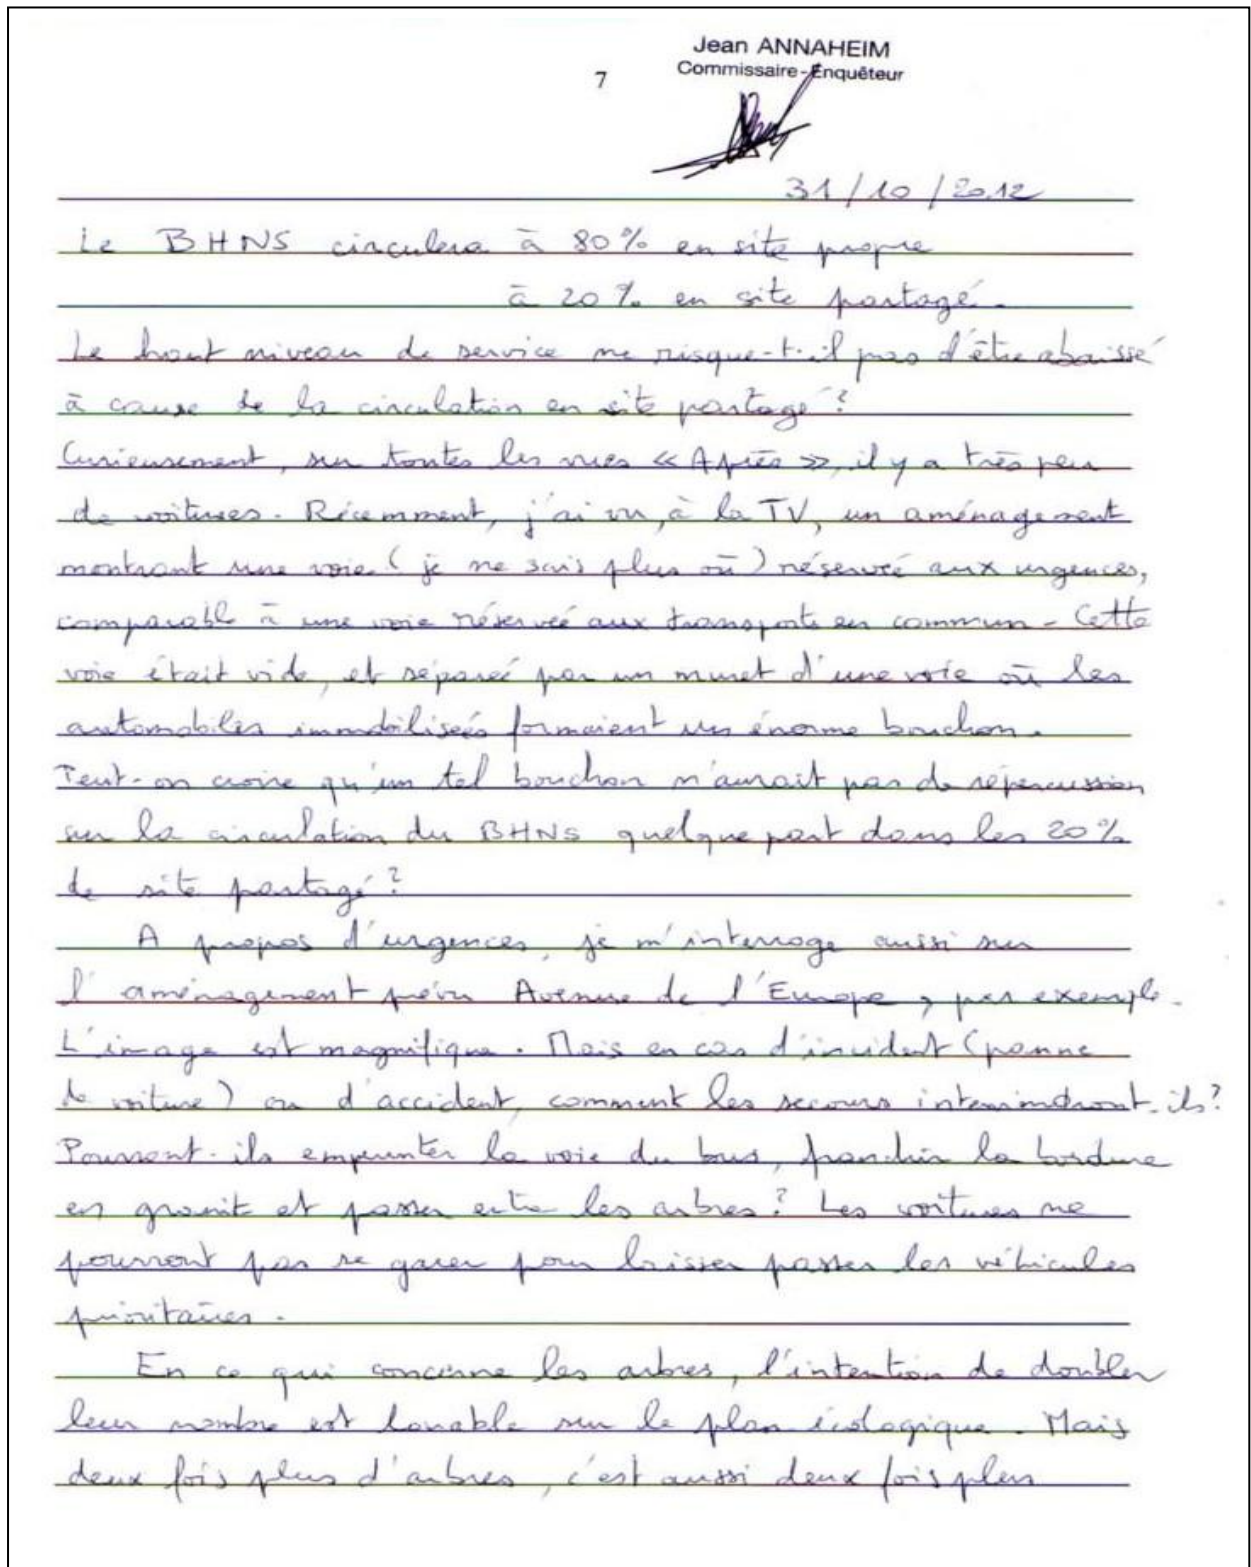 Jean ANNAHEIM
Commissaire-Enquêteur
7
31/10/2012
Le BHNS circulera à 80% en site propre
à 20% en site partagé.
Le haut niveau de service ne risque-t-il pas d'être abaissé
à cause de la circulation en site partagé?
Curieusement, sur toutes les vues « Après », il y a très peu
de voitures. Récemment, j'ai vu, à la TV, un aménagement
montrant une voie (je ne sais plus où) réservée aux urgences,
comparable à une voie réservée aux transports en commun - Cette
voie était vide, et séparée par un muret d'une voie où les
automobiles immobilisées formaient un énorme bouchon.
Peut-on croire qu'un tel bouchon n'aurait pas de répercussion
sur la circulation du BHNS quelque part dans les 20%
de site partagé?
A propos d'urgences, je m'interroge aussi sur
l'aménagement prévu Avenue de l'Europe, par exemple.
L'image est magnifique. Mais en cas d'incident (panne
de voiture) ou d'accident, comment les secours interviendront-ils?
Pourront-ils emprunter la voie du bus, franchir la bordure
en granit et passer entre les arbres? Les voitures ne
pourront pas se garer pour laisser passer les véhicules
prioritaires.
En ce qui concerne les arbres, l'intention de doubler
leur nombre est louable sur le plan écologique. Mais
deux fois plus d'arbres, c'est aussi deux fois plus